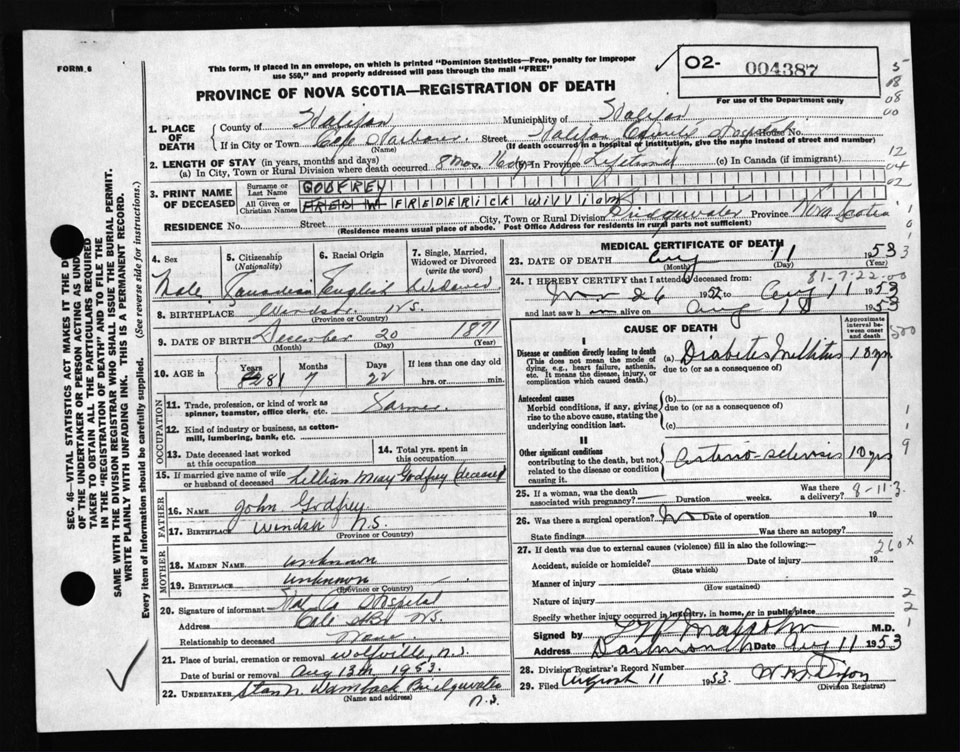 FORM 6
This form, if placed in an envelope, on which is printed "Dominion Statistics—Free, penalty for improper
use $50," and properly addressed will pass through the mail "FREE"
O2- 004387
For use of the Department only
PROVINCE OF NOVA SCOTIA—REGISTRATION OF DEATH
1. PLACE OF DEATH
County of Halifax Municipality of Halifax
If in City or Town Cole Harbour Street Halifax County Hospital House No.
(Name) (If death occurred in a hospital or institution, give the name instead of street and number)
2. LENGTH OF STAY (in years, months and days)
(a) In City, Town or Rural Division where death occurred 8 mos. 16 dys (b) In Province Lifetime (c) In Canada (if immigrant)
3. PRINT NAME OF DECEASED
Surname or Last Name GODFREY
All Given or Christian Names FRED W FREDERICK William
RESIDENCE No. Street City, Town or Rural Division Bridgewater Province Nova Scotia
(Residence means usual place of abode. Post Office Address for residents in rural parts not sufficient)
4. Sex Male
5. Citizenship (Nationality) Canadian
6. Racial Origin English
7. Single, Married, Widowed or Divorced (write the word) Widowed
8. BIRTHPLACE Windsor N.S.
(Province or Country)
9. DATE OF BIRTH December 20 1871
(Month) (Day) (Year)
10. AGE in Years 81 Months 7 Days 22 If less than one day old hrs. or min.
OCCUPATION
11. Trade, profession, or kind of work as spinner, teamster, office clerk, etc. Farmer
12. Kind of industry or business, as cotton-mill, lumbering, bank, etc.
13. Date deceased last worked at this occupation
14. Total yrs. spent in this occupation
15. If married give name of wife or husband of deceased Lillian May Godfrey (deceased)
FATHER
16. NAME John Godfrey
17. BIRTHPLACE Windsor N.S.
(Province or Country)
MOTHER
18. MAIDEN NAME unknown
19. BIRTHPLACE unknown
(Province or Country)
20. Signature of informant Hal Co Hospital
Address Cole Hbr N.S.
Relationship to deceased None
21. Place of burial, cremation or removal Wolfville, N.S.
Date of burial or removal Aug 13th, 1953.
22. UNDERTAKER Wambach Bridgewater
(Name and address) N.S.
MEDICAL CERTIFICATE OF DEATH
23. DATE OF DEATH Aug 11 1953
(Month) (Day) (Year)
81-7-22-00
24. I HEREBY CERTIFY that I attended deceased from:
26 1952 to Aug 11 1953
and last saw him alive on Aug 8 1953
CAUSE OF DEATH
Approximate interval between onset and death
I
Disease or condition directly leading to death (a) Diabetes Mellitus 10 yrs
(This does not mean the mode of dying, e.g., heart failure, asthenia, etc. It means the disease, injury, or complication which caused death.)
due to (or as a consequence of)
Antecedent causes
Morbid conditions, if any, giving rise to the above cause, stating the underlying condition last.
(b)
due to (or as a consequence of)
(c)
II
Other significant conditions
contributing to the death, but not related to the disease or condition causing it.
Arterio-sclerosis 10 yrs
25. If a woman, was the death associated with pregnancy? Duration weeks. Was there a delivery? 8-11-3
26. Was there a surgical operation? No Date of operation 19
State findings Was there an autopsy?
27. If death was due to external causes (violence) fill in also the following:— 260x
Accident, suicide or homicide? Date of injury 19
(State which)
Manner of injury
(How sustained)
Nature of injury
Specify whether injury occurred in industry, in home, or in public place
Signed by Malcolm M.D.
Address Dartmouth Date Aug 11 1953
28. Division Registrar's Record Number
29. Filed August 11 1953. W. M. Dixon
(Division Registrar)
SEC. 46—VITAL STATISTICS ACT MAKES IT THE
OF THE UNDERTAKER OR PERSON ACTING AS
TAKER TO OBTAIN ALL THE PARTICULARS REQUIRED
IN THE "REGISTRATION OF DEATH" AND TO FILE THE
SAME WITH THE DIVISION REGISTRAR WHO SHALL ISSUE THE BURIAL PERMIT.
WRITE PLAINLY WITH UNFADING INK. THIS IS A PERMANENT RECORD.
Every item of information should be carefully supplied. (See reverse side for instructions.)